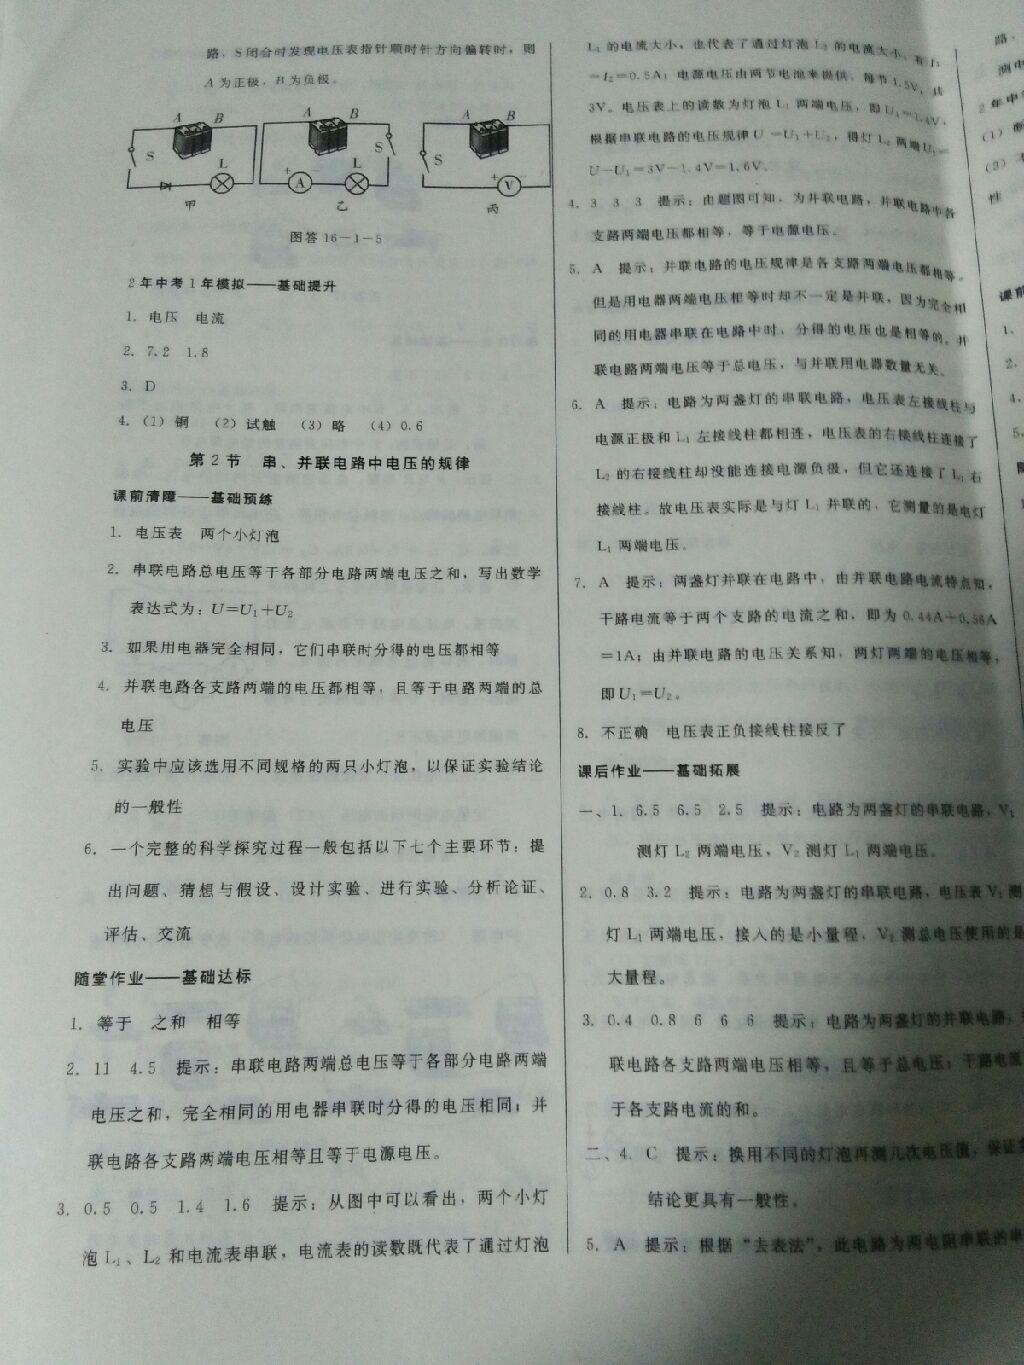 路，S闭合时发现电压表指针顺时针方向偏转时，则
A为正极，B为负极。
A B S L 甲
A B S L A 乙
A B S V 丙
图答16－1－5
2年中考1年模拟——基础提升
1. 电压 电流
2. 7.2 1.8
3. D
4.（1）铜 （2）试触 （3）略 （4）0.6
第2节 串、并联电路中电压的规律
课前清障——基础预练
1. 电压表 两个小灯泡
2. 串联电路总电压等于各部分电路两端电压之和，写出数学
表达式为：U=U₁+U₂
3. 如果用电器完全相同，它们串联时分得的电压都相等
4. 并联电路各支路两端的电压都相等，且等于电路两端的总
电压
5. 实验中应该选用不同规格的两只小灯泡，以保证实验结论
的一般性
6. 一个完整的科学探究过程一般包括以下七个主要环节：提
出问题、猜想与假设、设计实验、进行实验、分析论证、
评估、交流
随堂作业——基础达标
1. 等于 之和 相等
2. 11 4.5 提示：串联电路两端总电压等于各部分电路两端
电压之和，完全相同的用电器串联时分得的电压相同；并
联电路各支路两端电压相等且等于电源电压。
3. 0.5 0.5 1.4 1.6 提示：从图中可以看出，两个小灯
泡L₁、L₂和电流表串联，电流表的读数既代表了通过灯泡
L₁的电流大小，也代表了通过灯泡L₂的电流大小，有I₁
=I₂=0.5A；电源电压由两节电池来提供，每节1.5V，共
3V。电压表上的读数为灯泡L₁两端电压，即U₁=1.4V，
根据串联电路的电压规律U=U₁+U₂，得灯L₂两端U₂=
U－U₁=3V－1.4V=1.6V。
4. 3 3 3 提示：由题图可知，为并联电路，并联电路中各
支路两端电压都相等，等于电源电压。
5. A 提示：并联电路的电压规律是各支路两端电压都相等。
但是用电器两端电压相等时却不一定是并联，因为完全相
同的用电器串联在电路中时，分得的电压也是相等的。并
联电路两端电压等于总电压，与并联用电器数量无关。
6. A 提示：电路为两盏灯的串联电路，电压表左接线柱与
电源正极和L₁左接线柱都相连，电压表的右接线柱连接了
L₂的右接线柱却没能连接电源负极，但它还连接了L₁右
接线柱。故电压表实际是与灯L₁并联的，它测量的是电灯
L₁两端电压。
7. A 提示：两盏灯并联在电路中，由并联电路电流特点知，
干路电流等于两个支路的电流之和，即为0.44A+0.56A
=1A；由并联电路的电压关系知，两灯两端的电压相等，
即U₁=U₂。
8. 不正确 电压表正负接线柱接反了
课后作业——基础拓展
一、1. 6.5 6.5 2.5 提示：电路为两盏灯的串联电路，V₁
测灯L₂两端电压，V₂测灯L₁两端电压。
2. 0.8 3.2 提示：电路为两盏灯的串联电路，电压表V₁测
灯L₁两端电压，接入的是小量程，V₂测总电压使用的是
大量程。
3. 0.4 0.8 6 6 6 提示：电路为两盏灯的并联电路，
联电路各支路两端电压相等，且等于总电压；干路电流
于各支路电流的和。
二、4. C 提示：换用不同的灯泡再测几次电压值，保证
结论更具有一般性。
5. A 提示：根据“去表法”，此电路为两电阻串联的串
路，
测电
2年中
（1）
（2）
性
课前
1.
2.
4.
5.